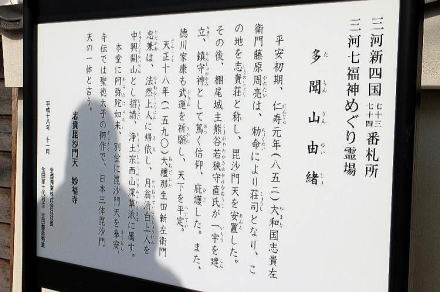 三河新四国 七十三 七十四 番札所
三河七福神めぐり霊場
多聞山由緒
たもんさんゆいしょ
平安初期、仁寿元年(八五一)大和国志貴左
衛門藤原周亮は、勅命により荘司となり、こ
の地を志貴荘と称し、毘沙門天を安置した。
その後、棚尾城主熊谷若狭守直氏が一宇を建
立、鎮守神として篤く信仰、庇護した。また、
徳川家康も武運を祈願し、天下を平定。
天正十八年(一五九〇)大檀那生田新左衛門
忠兼は、法然上人に帰依し、月翁清白上人を
中興開山とし招請、浄土宗西山深草派に属す。
本堂に阿弥陀如来、別堂に毘沙門天を奉安、
寺伝では聖徳太子の御作で、日本三体毘沙門
天の一体と言う。
平成十八年 十二月
志貴毘沙門天 妙福寺